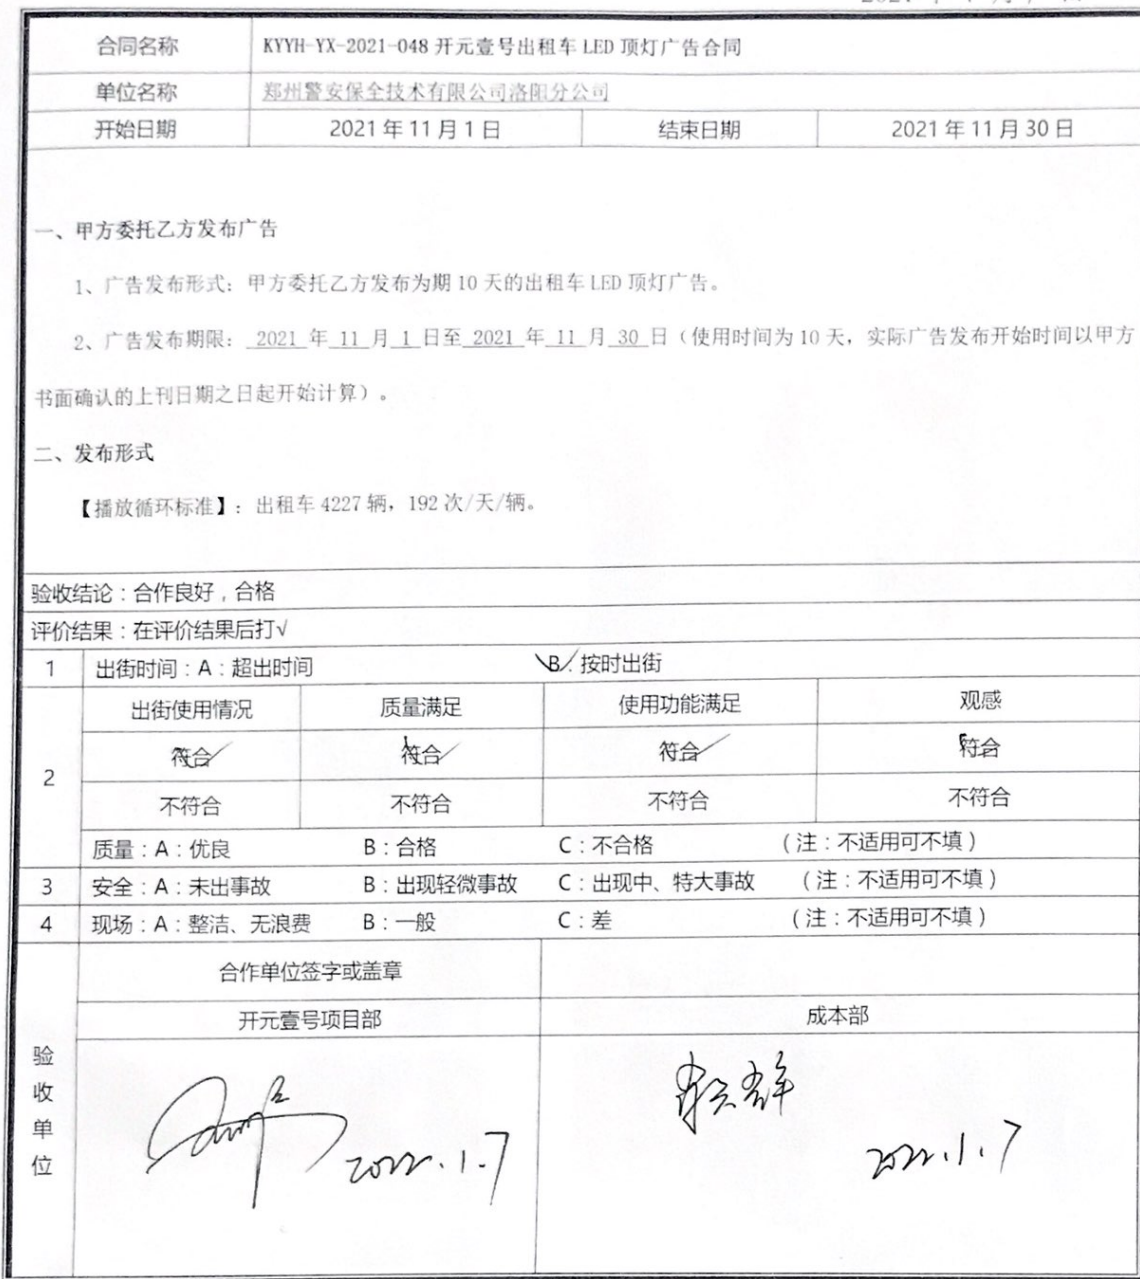 合同名称 KYYH-YX-2021-048 开元壹号出租车 LED 顶灯广告合同
单位名称 郑州警安保全技术有限公司洛阳分公司
开始日期 2021 年 11 月 1 日 结束日期 2021 年 11 月 30 日
一、甲方委托乙方发布广告
1、广告发布形式：甲方委托乙方发布为期 10 天的出租车 LED 顶灯广告。
2、广告发布期限： 2021 年 11 月 1 日至 2021 年 11 月 30 日（使用时间为 10 天，实际广告发布开始时间以甲方
书面确认的上刊日期之日起开始计算）。
二、发布形式
【播放循环标准】：出租车 4227 辆，192 次/天/辆。
验收结论：合作良好，合格
评价结果：在评价结果后打√
1 出街时间：A：超出时间 B：按时出街
出街使用情况 质量满足 使用功能满足 观感
符合 符合 符合 符合
2
不符合 不符合 不符合 不符合
质量：A：优良 B：合格 C：不合格 （注：不适用可不填）
3 安全：A：未出事故 B：出现轻微事故 C：出现中、特大事故 （注：不适用可不填）
4 现场：A：整洁、无浪费 B：一般 C：差 （注：不适用可不填）
合作单位签字或盖章
开元壹号项目部 成本部
验收单位
2022.1.7 2022.1.7